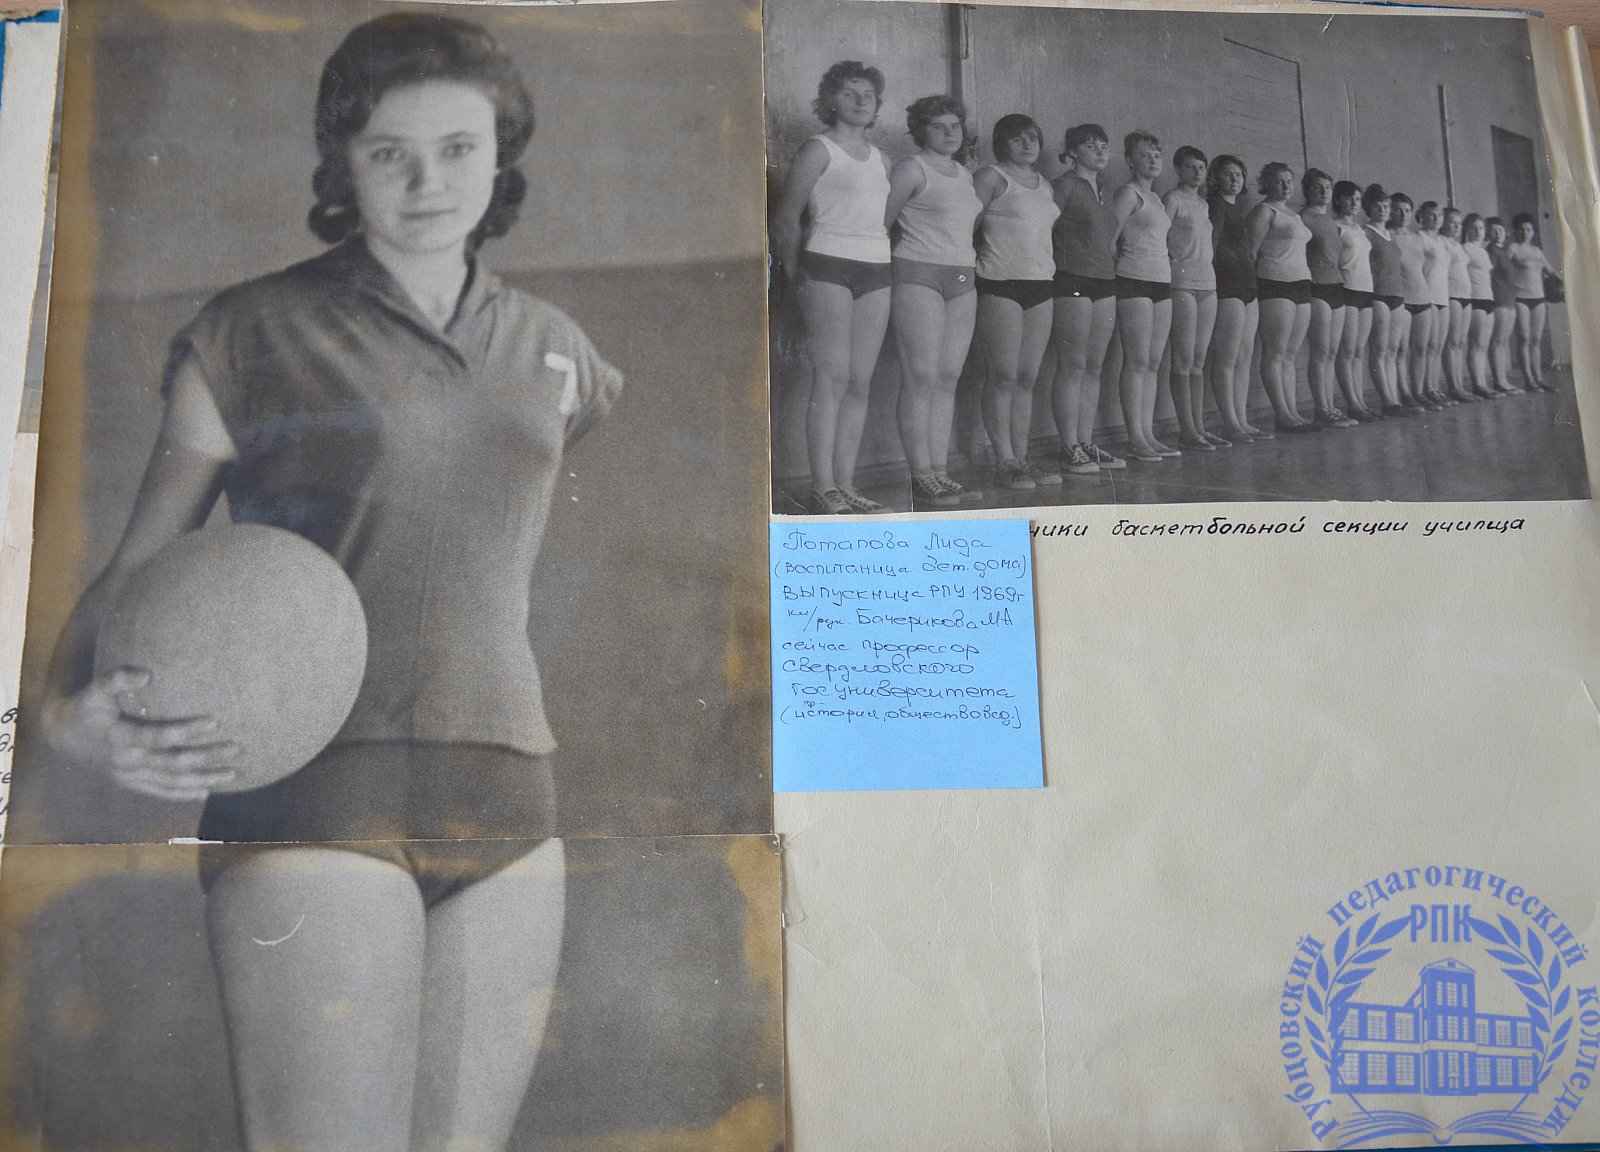 7
ники баскетбольной секции училища
Потапова Лида
(воспитаница дет. дома)
выпускница РПУ 1969г
кл/рук. Бачерикова МА
сейчас профессор
Свердловского
Госуниверситета
(история, обществовед.)
Рубцовский педагогический колледж
РПК